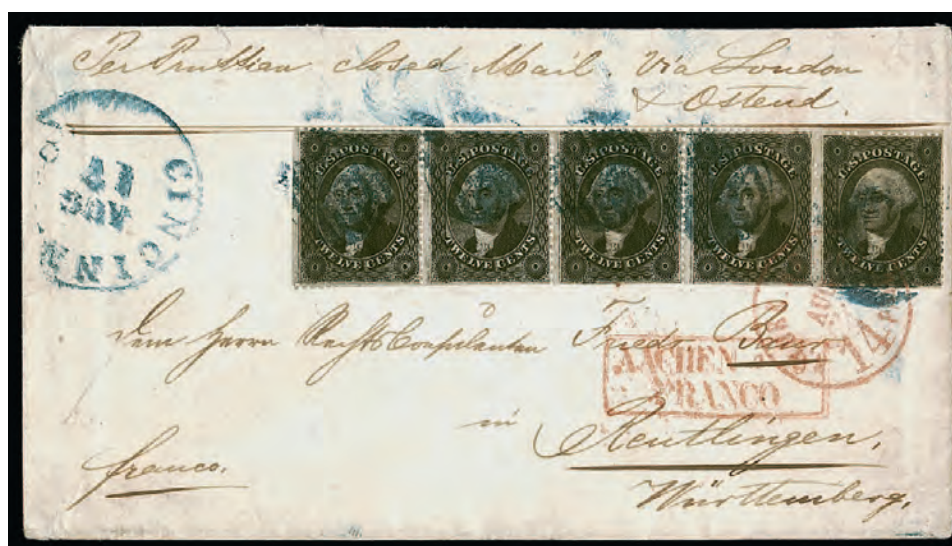 Per Prussian closed Mail. Via London
& Ostend.
CINCINN O
AUG
U.S. POSTAGE
TWELVE CENTS
U.S. POSTAGE
TWELVE CENTS
U.S. POSTAGE
TWELVE CENTS
U.S. POSTAGE
TWELVE CENTS
U.S. POSTAGE
TWELVE CENTS
AU
14
Dem Herrn Rechts Consulenten Friedr. Baur
AACHEN
FRANCO
in Reutlingen,
franco.
Württemberg,